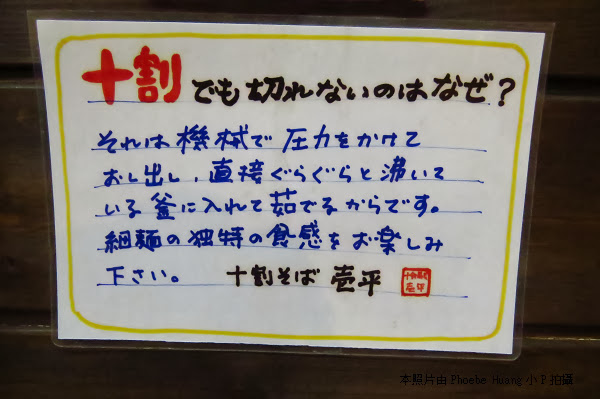 十割でも切れないのはなぜ？
それは機械で圧力をかけて
おし出し、直接ぐらぐらと沸いて
いる釜に入れて茹でるからです。
細麺の独特の食感をお楽しみ
下さい。 十割そば 壱平
本照片由 Phoebe Huang 小P拍攝